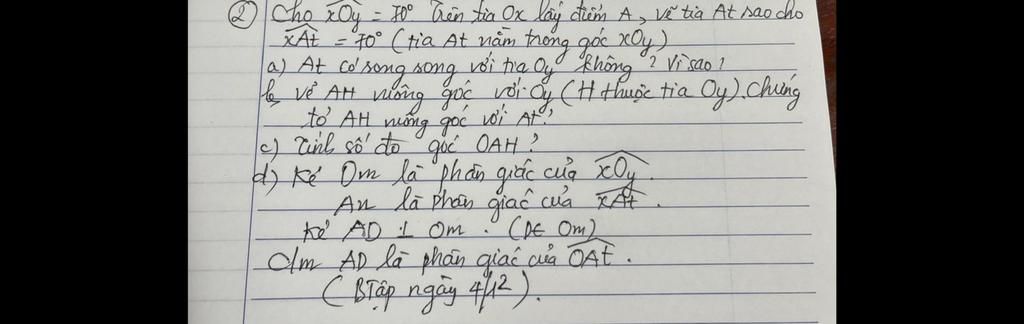 ② Cho xOy = 70° Trên tia Ox lấy điểm A, vẽ tia At sao cho
xAt = 70° (tia At nằm trong góc xOy)
a) At có song song với tia Oy không? Vì sao?
b, vẽ AH vuông góc với Oy (H thuộc tia Oy). Chứng
tỏ AH vuông góc với At?
c) Tính số đo góc OAH?
d) Kẻ Om là phân giác của xOy.
An là phân giác của xAt.
Kẻ AD ⊥ Om. (D∈ Om)
C/m AD là phân giác của OAt.
(BTập ngày 4/12).